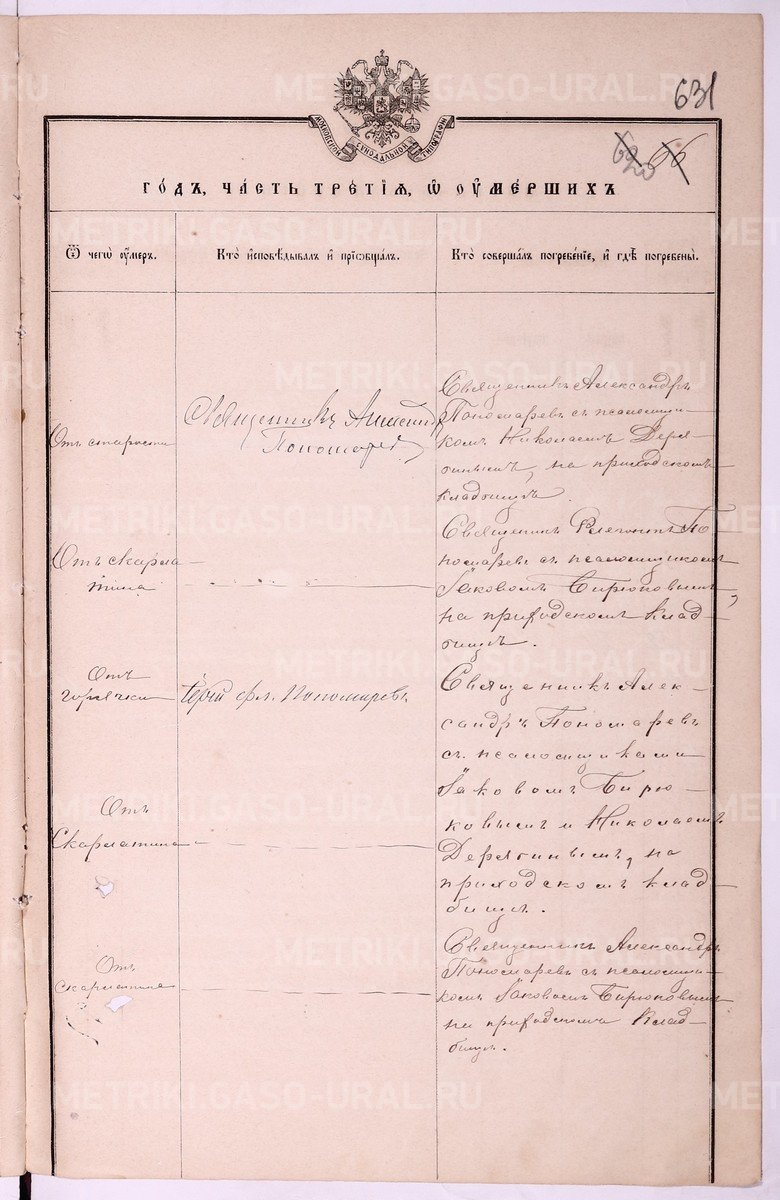 631
МОСКОВСКОЙ СѴНОДАЛЬНОЙ ТИПОГРАФІИ
620 66
ГО́ДЪ, ЧА́СТЬ ТРЕ́ТІѦ, Ѡ҆ ОУ҆МЕ́РШИХЪ
Ѿ чегѡ̀ оу҆́меръ.
Кто̀ и҆сповѣ́дывалъ и҆ прїѡбща́лъ.
Кто̀ соверша́лъ погребе́нїе, и҆ гдѣ̀ погребены̀.
Отъ старости
Священникъ Александръ
Пономаревъ
Священникъ Александръ
Пономаревъ съ псаломщи-
комъ Николаемъ Деря-
гинымъ, на приходскомъ
кладбищѣ.
Отъ скарла-
тина
Священникъ Флегонтъ По
номаревъ съ псаломщикомъ
Іаковомъ Бирюковымъ,
на приходскомъ клад-
бищѣ.
Отъ
горячки
Іерей Фл. Пономаревъ
Священникъ Алек-
сандръ Пономаревъ
съ псаломщиками
Іаковомъ Бирю-
ковымъ и Николаемъ
Дерягинымъ, на
приходскомъ клад-
бищѣ.
Отъ
Скарлатина
Отъ
скарлатина
Священникъ Александръ
Пономаревъ съ псаломщи-
комъ Іаковомъ Бирюковымъ
на приходскомъ клад-
бищѣ.
METRIKI.GASO-URAL.RU